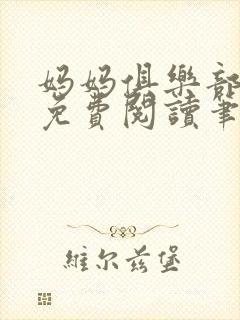 妈妈俱樂部
免費閱讀筆
維尔兹堡